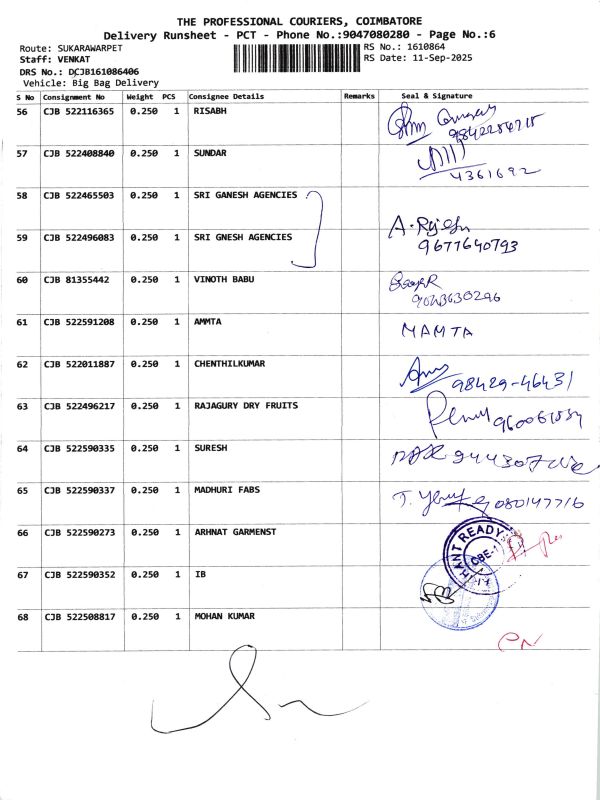 THE PROFESSIONAL COURIERS, COIMBATORE
Delivery Runsheet - PCT - Phone No.:9047080280 - Page No.:6
Route: SUKARAWARPET RS No.: 1610864
Staff: VENKAT RS Date: 11-Sep-2025
DRS No.: DCJB161086406
Vehicle: Big Bag Delivery
S No Consignment No Weight PCS Consignee Details Remarks Seal & Signature
56 CJB 522116365 0.250 1 RISABH
57 CJB 522408840 0.250 1 SUNDAR
4361692
58 CJB 522465503 0.250 1 SRI GANESH AGENCIES
59 CJB 522496083 0.250 1 SRI GNESH AGENCIES
9677640793
60 CJB 81355442 0.250 1 VINOTH BABU
61 CJB 522591208 0.250 1 AMMTA MAMTA
62 CJB 522011887 0.250 1 CHENTHILKUMAR
98429-46431
63 CJB 522496217 0.250 1 RAJAGURY DRY FRUITS
64 CJB 522590335 0.250 1 SURESH
65 CJB 522590337 0.250 1 MADHURI FABS
66 CJB 522590273 0.250 1 ARHNAT GARMENST
READY
CBE-1
67 CJB 522590352 0.250 1 IB
68 CJB 522508817 0.250 1 MOHAN KUMAR